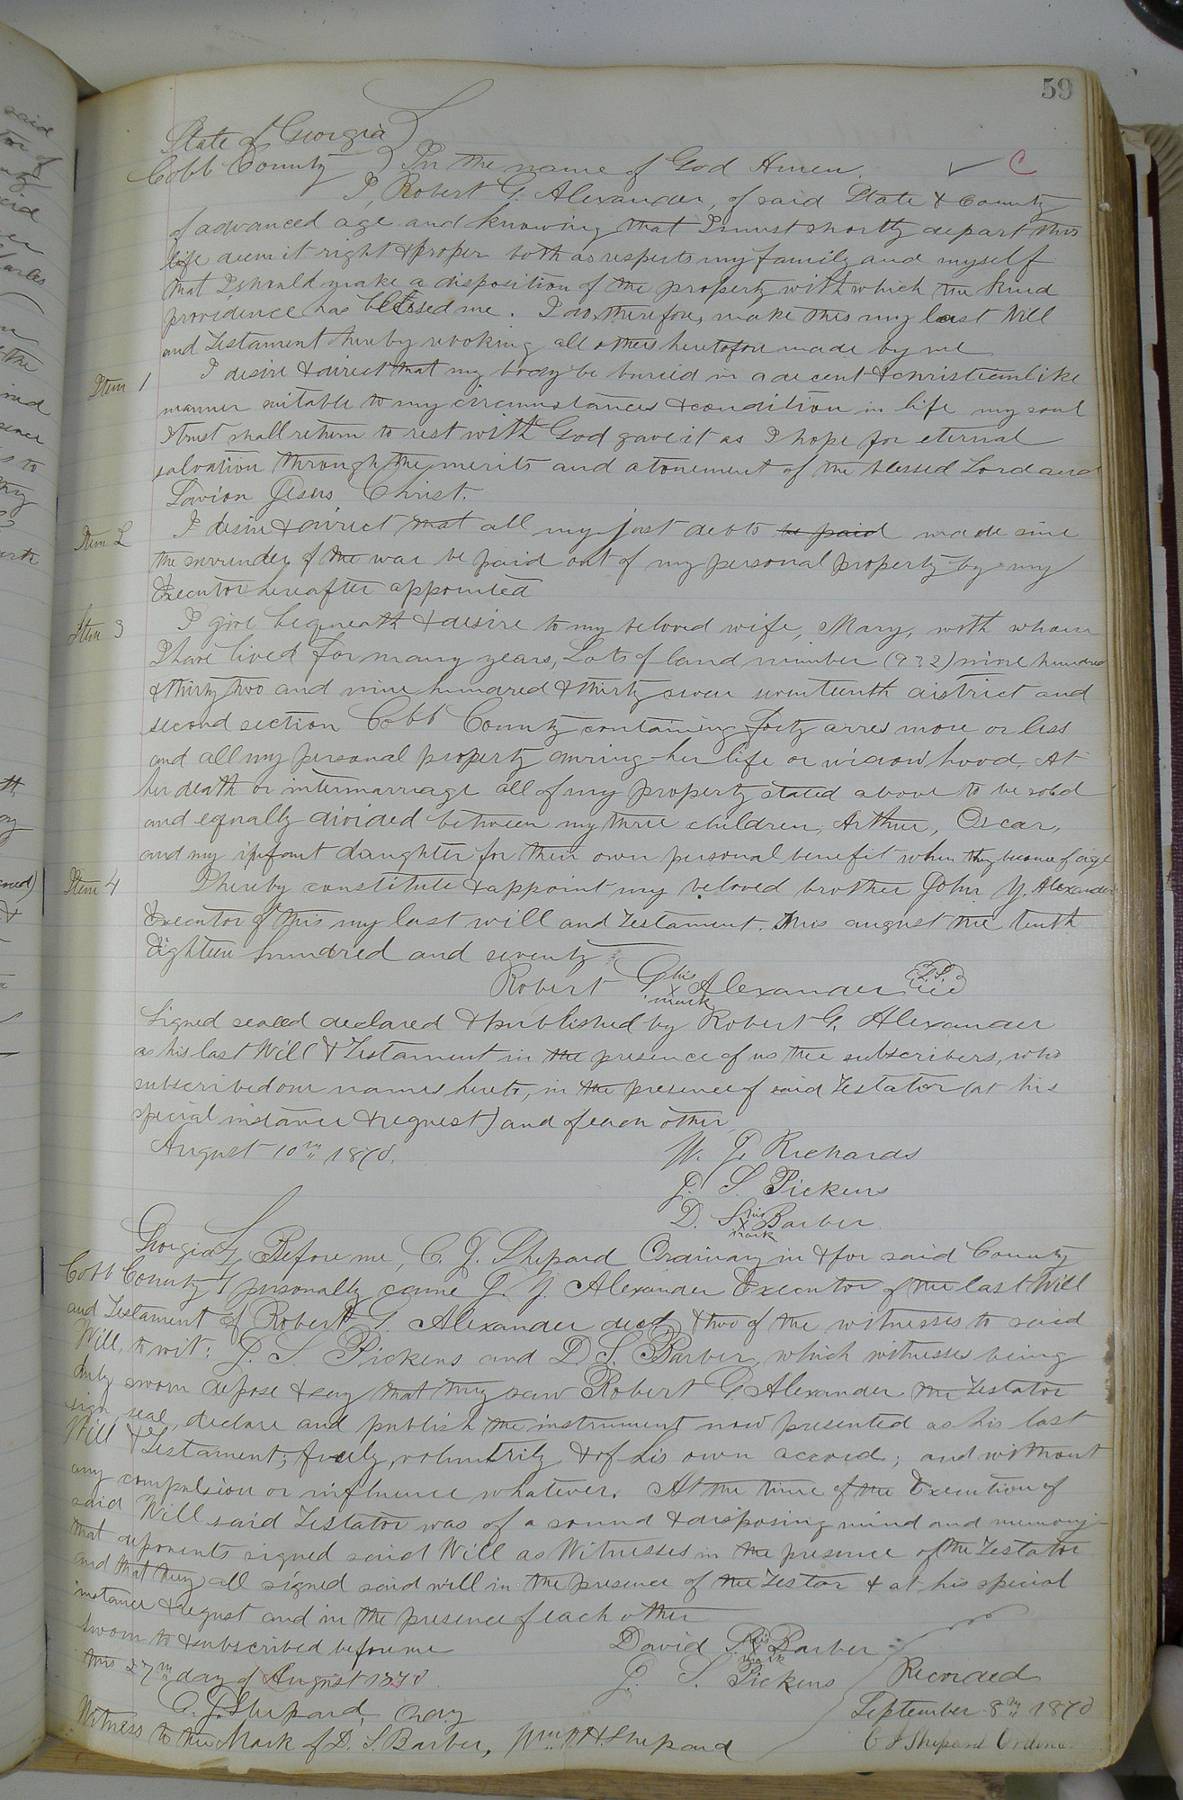 59
State of Georgia )
Cobb County ) In the name of God Amen. C
I, Robert G. Alexander, of said State & County
of advanced age and knowing that I must shortly depart this
life deem it right & proper both as respects my family and myself
that I should make a disposition of the property with which the kind
providence has blessed me. I do, therefore, make this my last Will
and Testament hereby revoking all others heretofore made by me
Item 1 I desire & direct that my body be buried in a decent & christian like
manner suitable to my circumstances & condition in life my soul
I trust shall return to rest with God gave it as I hope for eternal
salvation through the merits and atonement of the blessed Lord and
Savior Jesus Christ.
Item 2 I desire & direct that all my just debts be paid made since
the surrender of the war be paid out of my personal property by my
Executor hereafter appointed
Item 3 I give bequeath & desire to my beloved wife, Mary, with whom
I have lived for many years, Lots of land number (932) nine hundred
& thirty two and nine hundred & thirty seven seventeenth district and
second section Cobb County containing forty acres more or less
and all my personal property during her life or widowhood. At
her death or intermarriage all of my property stated above to be sold
and equally divided between my three children, Arthur, Oscar,
and my infant daughter for their own personal benefit when they become of age
Item 4 I hereby constitute & appoint my beloved brother John Y. Alexander
Executor of this my last will and Testament. This august the tenth
Eighteen hundred and seventy
Robert G. his x mark Alexander L.S.
Signed sealed declared & published by Robert G. Alexander
as his last Will & Testament in the presence of us the subscribers, who
subscribed our names hereto, in the presence of said Testator (at his
special instance & request) and of each other
August 10th 1870.
W. J. Richards
J. S. Pickens
D. S. his x mark Barber
Georgia } Before me, C. J. Shepard Ordinary in & for said County
Cobb County } personally came J. Y. Alexander Executor of the last Will
and Testament of Robert G. Alexander decd & two of the witnesses to said
Will, to wit: J. S. Pickens and D S. Barber, which witnesses being
duly sworn depose & say that they saw Robert G Alexander the Testator
sign, seal, declare and publish the instrument now presented as his last
Will & Testament; freely, voluntrily, & of his own accord; and without
any compulsion or influence whatever. At the time of the Execution of
said Will said Testator was of a sound & disposing mind and memory
that deponents signed said Will as Witnesses in the presence of the Testator
and that they all signed said will in the presence of the Testor & at his special
instance & request and in the presence of each other
Sworn to & subscribed before me
this 27th day of August 1870.
C. J. Shepard, Ordy
David S. his x mark Barber
J. S. Pickens
Witness to the Mark of D. S. Barber, Wm H. Shepard
Recorded
September 8th 1870
C J Shepard Ordina.